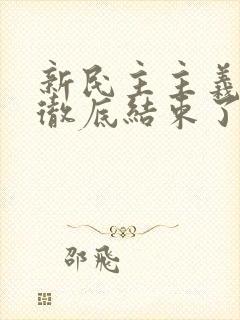 新民主主義
徹底結束了
邵飛